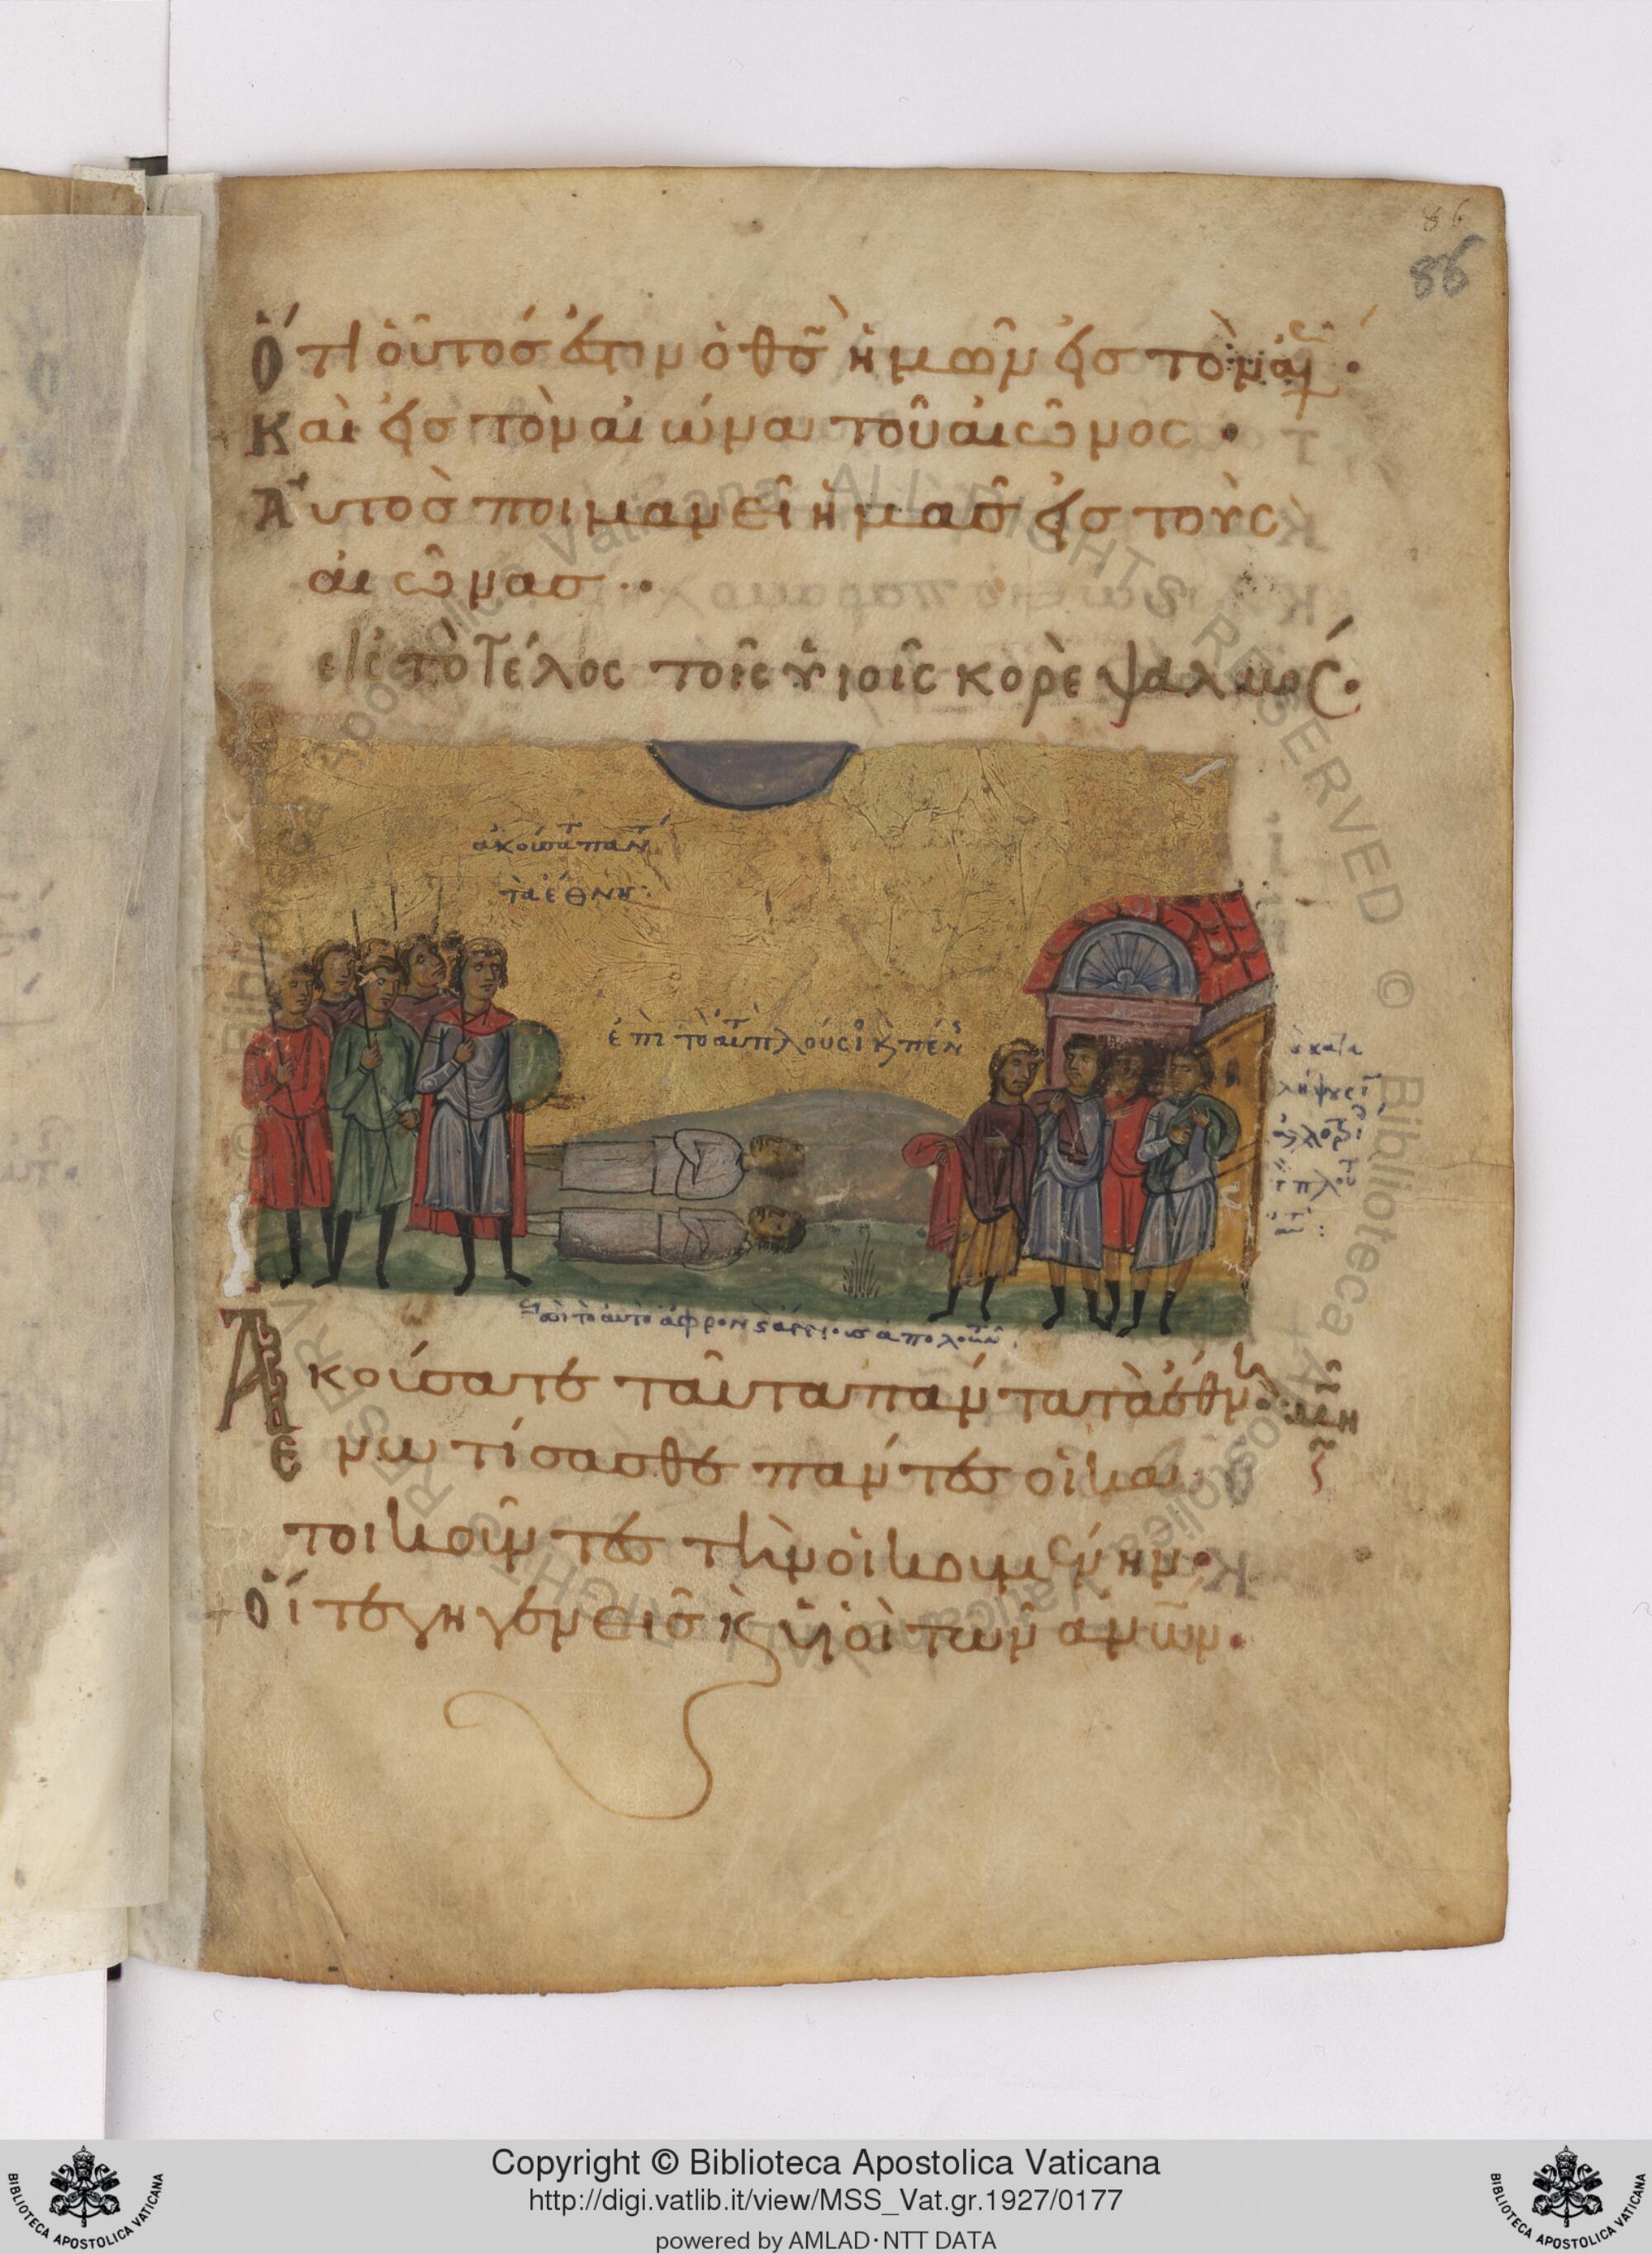 86
86
Ὅτι οὗτός ἐστιν ὁ θς̃ ἡμῶν εἰς τὸν αἰ
Καὶ εἰς τὸν αἰῶνα τοῦ αἰῶνος ·
Αὐτὸς ποιμανεῖ ἡμᾶς εἰς τοὺς
αἰῶνας ··
εἰς τὸ τέλος τοῖς υἱοῖς κορὲ ψαλμός·
ἀκούσατ παντ
τὰ ἔθνη:
ἐπὶ τοαυτ πλούσι κ πέν
ἐπὶ τὸ αὐτὸ ἄφρον κ ἄννους ἀπολοῦν
Ἀκούσατε ταῦτα πάντα τὰ ἔθνη·
Ἐνωτίσασθε πάντες οἱ κα
τοικοῦντες τὴν οἰκουμένην·
Οἵ τε γηγενεῖς κ υἱοὶ τῶν ανων·
Copyright © Biblioteca Apostolica Vaticana
http://digi.vatlib.it/view/MSS_Vat.gr.1927/0177
powered by AMLAD·NTT DATA
BIBLIOTECA APOSTOLICA VATICANA
BIBLIOTECA APOSTOLICA VATICANA
© Biblioteca Apostolica Vaticana ALL RIGHTS RESERVED
© Biblioteca Apostolica Vaticana ALL RIGHTS RESERVED